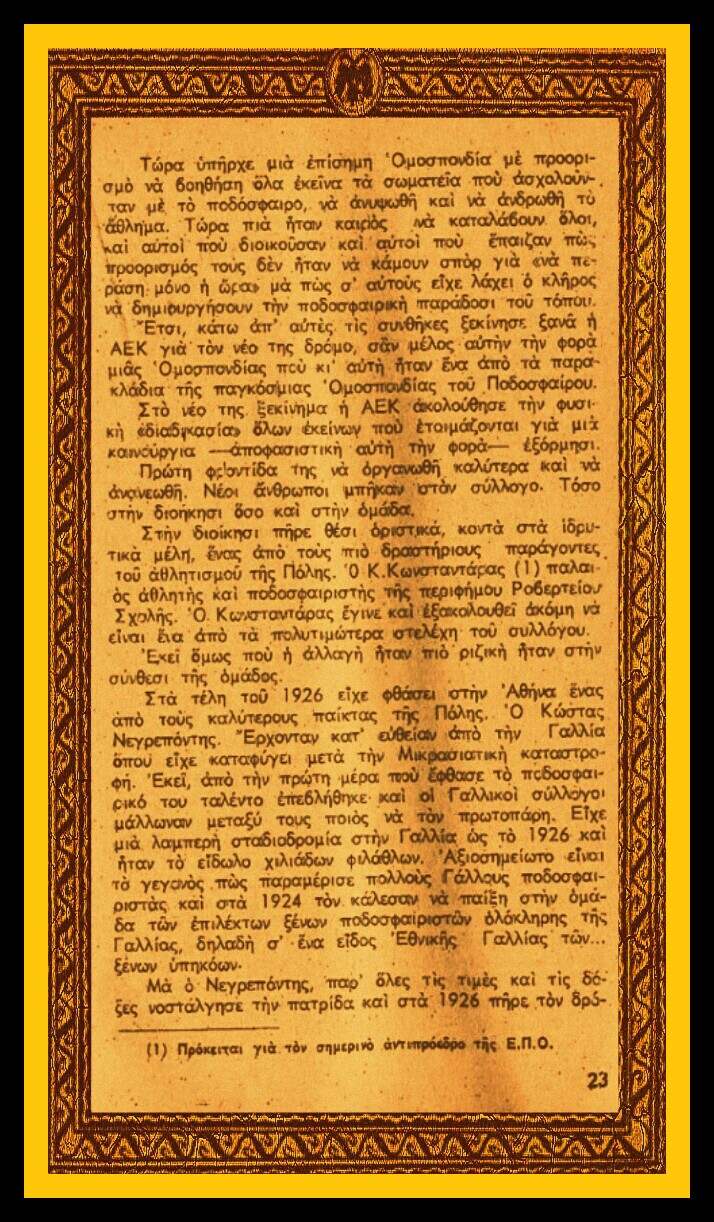 Τώρα ὑπῆρχε μιὰ ἐπίσημη Ὁμοσπονδία μὲ προορι-
σμὸ νὰ βοηθήση ὅλα ἐκεῖνα τὰ σωματεῖα ποὺ ἀσχολοῦν-
ταν μὲ τὸ ποδόσφαιρο, νὰ ἀνυψωθῆ καὶ νὰ ἀνδρωθῆ τὸ
ἄθλημα. Τώρα πιὰ ἦταν καιρὸς νὰ καταλάβουν ὅλοι,
καὶ αὐτοὶ ποὺ διοικοῦσαν καὶ αὐτοὶ ποὺ ἔπαιζαν πὼς
προορισμός τους δὲν ἦταν νὰ κάμουν σπὸρ γιὰ «νὰ πε-
ράση μόνο ἡ ὥρα» μὰ πὼς σ' αὐτοὺς εἶχε λάχει ὁ κλῆρος
νὰ δημιουργήσουν τὴν ποδοσφαιρικὴ παράδοσι τοῦ τόπου.
Ἔτσι, κάτω ἀπ' αὐτὲς τὶς συνθῆκες ξεκίνησε ξανὰ ἡ
ΑΕΚ γιὰ τὸν νέο της δρόμο, σὰν μέλος αὐτὴν τὴν φορὰ
μιᾶς Ὁμοσπονδίας ποὺ κι' αὐτὴ ἦταν ἕνα ἀπὸ τὰ παρα-
κλάδια τῆς παγκόσμιας Ὁμοσπονδίας τοῦ Ποδοσφαίρου.
Στὸ νέο της ξεκίνημα ἡ ΑΕΚ ἀκολούθησε τὴν φυσι-
κὴ «διαδικασία» ὅλων ἐκείνων ποὺ ἑτοιμάζονται γιὰ μιὰ
καινούργια —ἀποφασιστικὴ αὐτὴ τὴν φορὰ— ἐξόρμησι.
Πρώτη φροντίδα της νὰ ὀργανωθῆ καλύτερα καὶ νὰ
ἀνανεωθῆ. Νέοι ἄνθρωποι μπῆκαν στὸν σύλλογο. Τόσο
στὴν διοίκησι ὅσο καὶ στὴν ὁμάδα.
Στὴν διοίκησι πῆρε θέσι ὁριστικά, κοντὰ στὰ ἱδρυ-
τικὰ μέλη, ἕνας ἀπὸ τοὺς πιὸ δραστήριους παράγοντες
τοῦ ἀθλητισμοῦ τῆς Πόλης. Ὁ Κ.Κωνσταντάρας (1) παλαι-
ὸς ἀθλητὴς καὶ ποδοσφαιριστὴς τῆς περιφήμου Ροβερτείου
Σχολῆς. Ὁ Κωνσταντάρας ἔγινε καὶ ἐξακολουθεῖ ἀκόμη νὰ
εἶναι ἕνα ἀπὸ τὰ πολυτιμώτερα στελέχη τοῦ συλλόγου.
Ἐκεῖ ὅμως ποὺ ἡ ἀλλαγὴ ἦταν πιὸ ριζικὴ ἦταν στὴν
σύνθεσι τῆς ὁμάδος.
Στὰ τέλη τοῦ 1926 εἶχε φθάσει στὴν Ἀθήνα ἕνας
ἀπὸ τοὺς καλύτερους παίκτας τῆς Πόλης. Ὁ Κώστας
Νεγρεπόντης. Ἔρχονταν κατ' εὐθεῖαν ἀπὸ τὴν Γαλλία
ὅπου εἶχε καταφύγει μετὰ τὴν Μικρασιατικὴ καταστρο-
φή. Ἐκεῖ, ἀπὸ τὴν πρώτη μέρα ποὺ ἔφθασε τὸ ποδοσφαι-
ρικό του ταλέντο ἐπεβλήθηκε καὶ οἱ Γαλλικοὶ σύλλογοι
μάλλωναν μεταξύ τους ποιὸς νὰ τὸν πρωτοπάρη. Εἶχε
μιὰ λαμπερὴ σταδιοδρομία στὴν Γαλλία ὡς τὸ 1926 καὶ
ἦταν τὸ εἴδωλο χιλιάδων φιλάθλων. Ἀξιοσημείωτο εἶναι
τὸ γεγονὸς πὼς παραμέρισε πολλοὺς Γάλλους ποδοσφαι-
ριστὰς καὶ στὰ 1924 τὸν κάλεσαν νὰ παίξη στὴν ὁμά-
δα τῶν ἐπιλέκτων ξένων ποδοσφαιριστῶν ὁλόκληρης τῆς
Γαλλίας, δηλαδὴ σ' ἕνα εἶδος Ἐθνικῆς Γαλλίας τῶν...
ξένων ὑπηκόων.
Μὰ ὁ Νεγρεπόντης, παρ' ὅλες τὶς τιμὲς καὶ τὶς δό-
ξες νοστάλγησε τὴν πατρίδα καὶ στὰ 1926 πῆρε τὸν δρό-
(1) Πρόκειται γιὰ τὸν σημερινὸ ἀντιπρόεδρο τῆς Ε.Π.Ο.
23